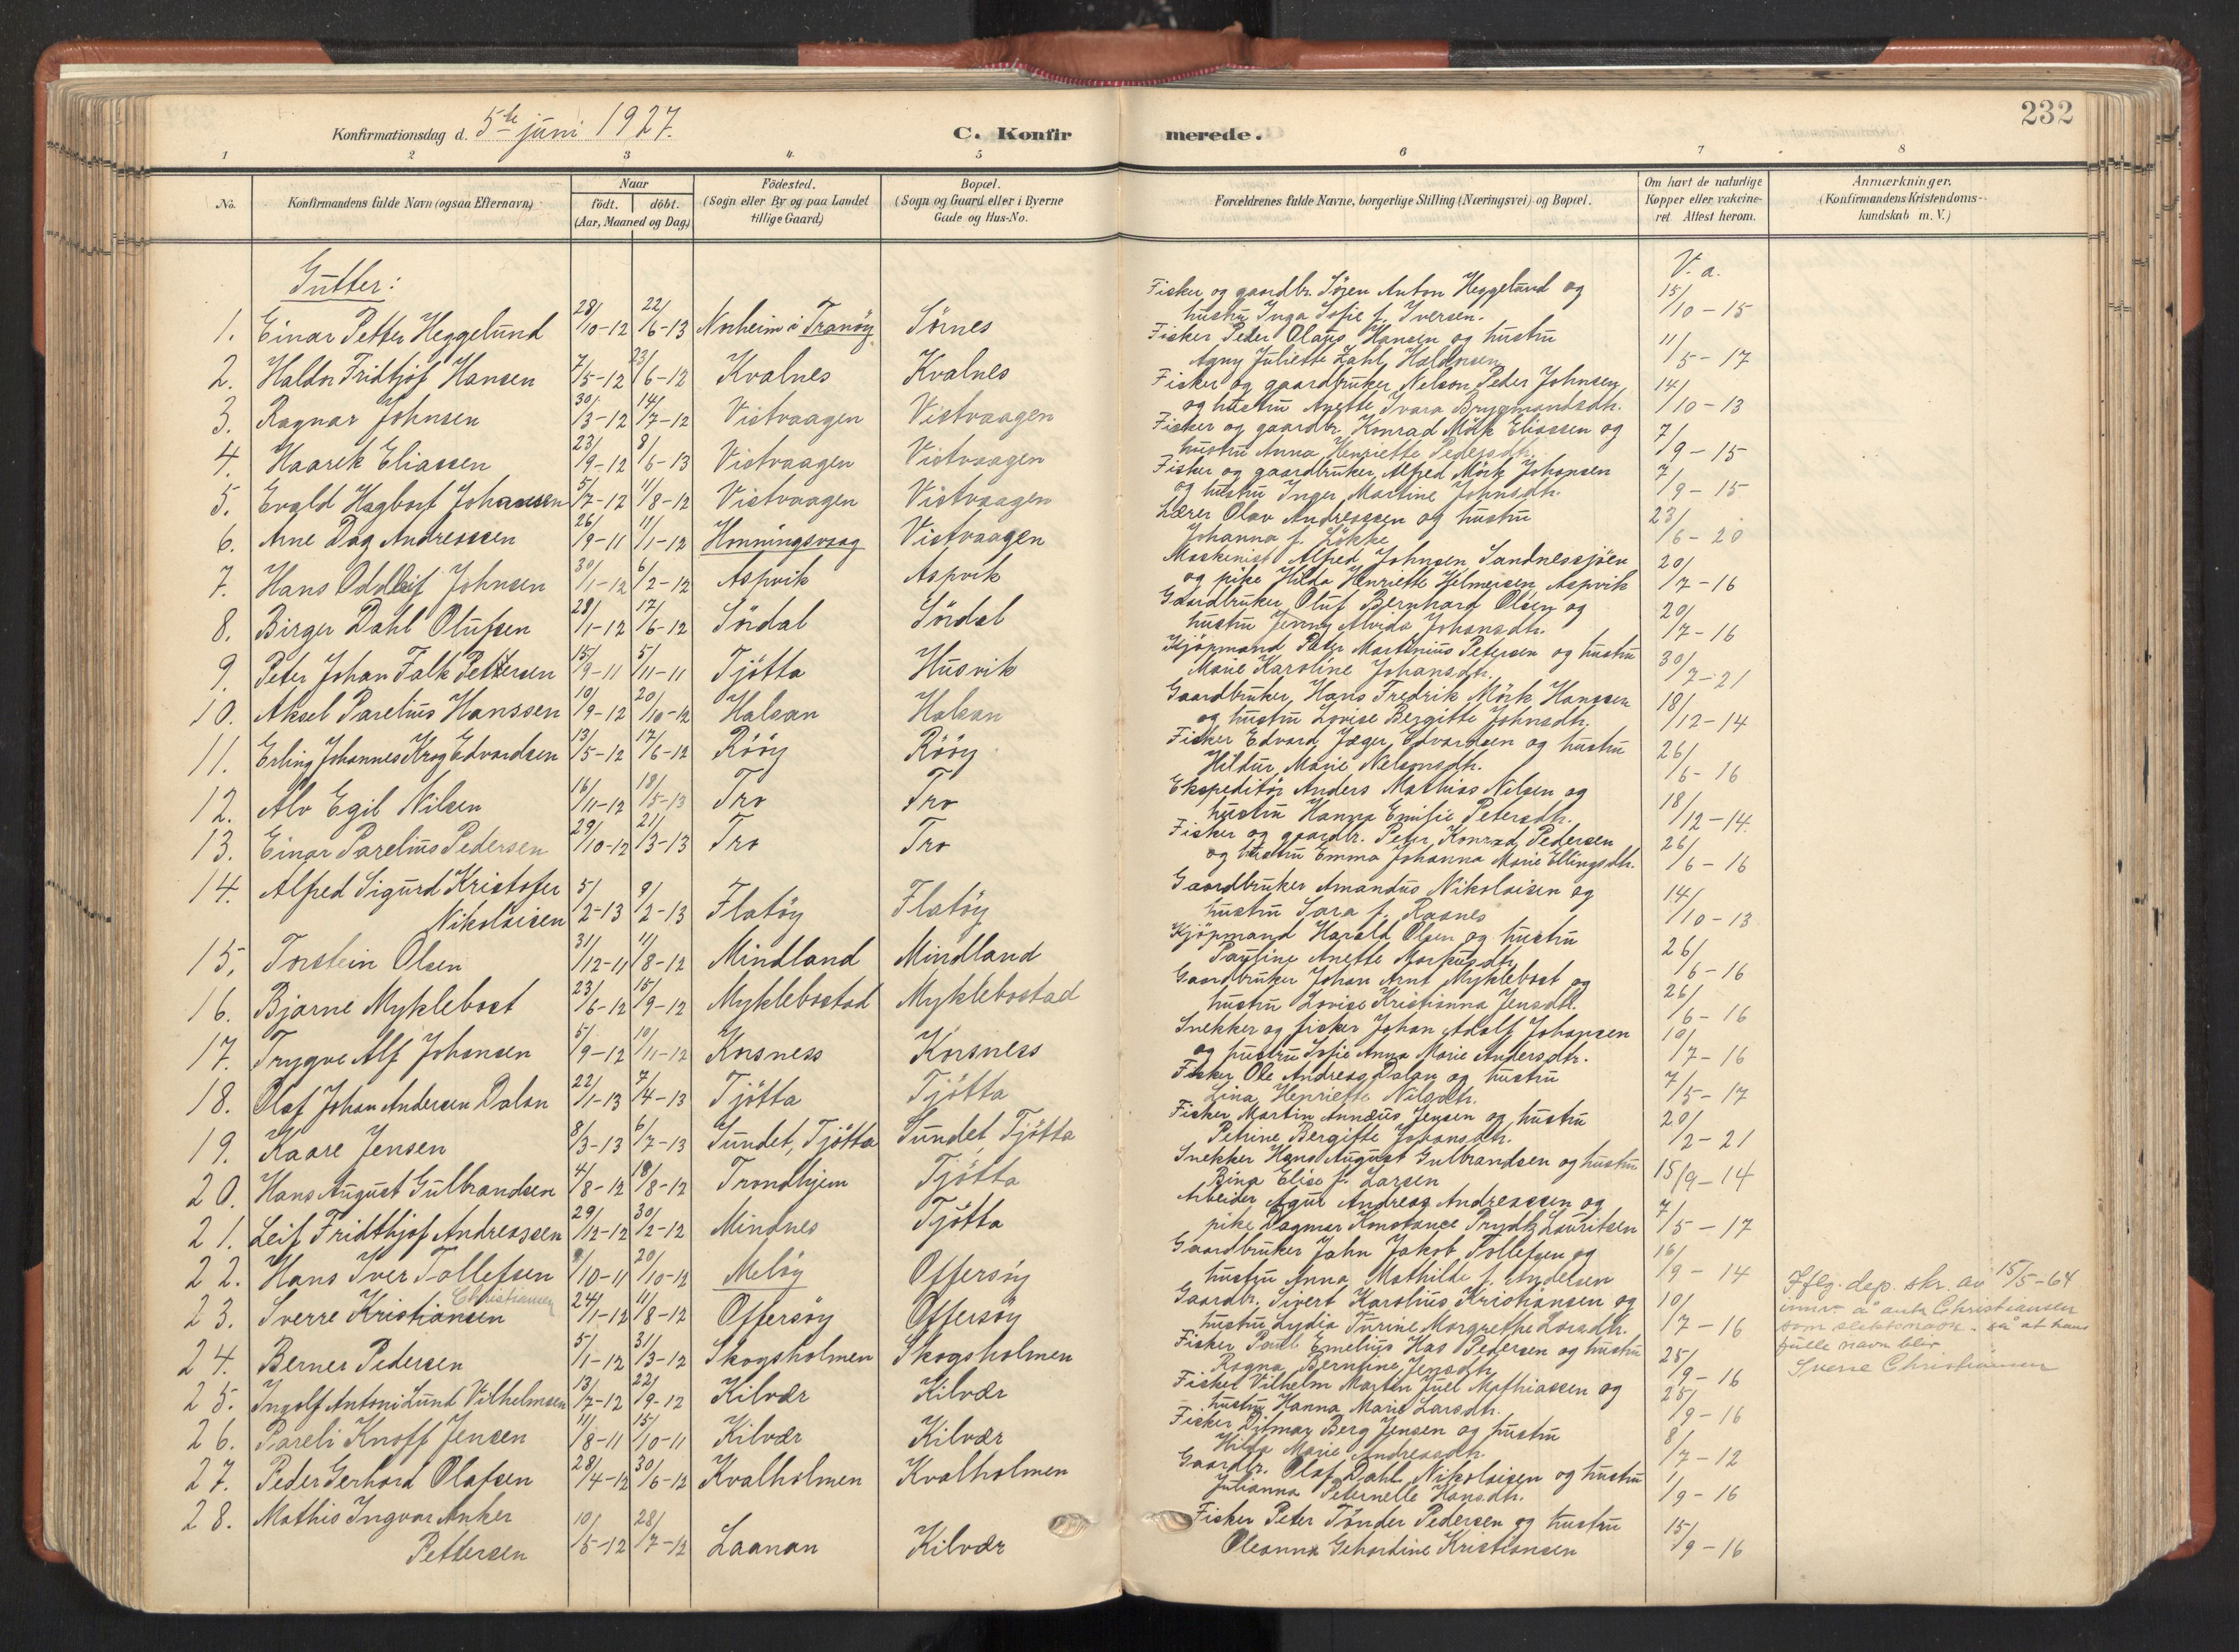 232
Konfirmationsdag d. 5te juni 1927.
C. Konfirmerede.
1 2 3 4 5 6 7 8
No.
Konfirmandens fulde Navn (ogsaa Efternavn)
Naar
födt. döbt.
(Aar, Maaned og Dag)
Födested.
(Sogn eller By og paa Landet
tillige Gaard)
Bopæl.
(Sogn og Gaard eller i Byerne
Gade og Hus-No.
Forældrenes fulde Navne, borgerlige Stilling (Næringsvei) og Bopæl.
Om havt de naturlige
Kopper eller vakcine-
ret Attest herom.
Anmærkninger.
(Konfirmandens Kristendoms-
kundskab m. V.)
Gutter:
V. a.
1. Einar Petter Heggelund 28/10-12 22/6-13 Norheim i Tranöy Sörnes Fisker og gaardbr. Sören Anton Heggelund og 15/10-15
hustru Inga Sofie f. Iversen.
2. Haldor Fridtjof Hansen 7/5-12 23/6-12 Kvalnes Kvalnes Fisker Peder Olaus Hansen og hustru 11/5-17
Agny Juliette Zahl Haldorsen
3. Ragnar Johnsen 30/3-12 14/7-12 Vistvaagen Vistvaagen Fisker og gaardbruker Nelson Peder Johnsen 14/10-13
og hustru Anette Ivara Brygmandsdtr.
4. Haarek Eliassen 23/9-12 8/6-13 Vistvaagen Vistvaagen Fisker og gaardbr. Konrad Mörk Eliassen og 7/9-15
hustru Anna Henriette Pedersdtr.
5. Evald Hagbart Johansen 5/7-12 11/8-12 Vistvaagen Vistvaagen Fisker og gaardbruker Alfred Mörk Johansen 7/9-15
og hustru Inger Martine Johnsdtr.
6. Arne Dag Andreassen 26/9-11 11/1-12 Honningsvaag Vistvaagen Lærer Olav Andreassen og hustru 23/6-20
Johanna f. Lökke
7. Hans Oddleif Johnsen 30/1-12 6/2-12 Aspvik Aspvik Maskinist Alfred Johnsen Sandnessjöen 20/7-16
og pike Hilda Henriette Helmersen Aspvik
8. Birger Dahl Olufsen 28/1-12 17/6-12 Sördal Sördal Gaardbruker Oluf Bernhard Olsen og 20/7-16
hustru Jenny Alvida Johansdtr.
9. Peter Johan Falk Pettersen 15/9-11 5/11-11 Tjötta Husvik Kjöpmand Peter Martinius Petersen og hustru 30/7-21
Marie Karoline Johansdtr.
10. Aksel Parelius Hanssen 10/9-12 20/10-12 Halsan Halsan Gaardbruker Hans Fredrik Mörk Hanssen 18/12-14
og hustru Lovise Bergitte Johnsdtr.
11. Erling Johannes Krog Edvardsen 13/5-12 17/6-12 Rööy Rööy Fisker Edvard Jæger Edvardsen og hustru 26/6-16
Hildur Marie Nelsonsdtr.
12. Alv Egil Nilsen 16/11-12 18/5-13 Tro Tro Ekspeditör Anders Mathias Nilsen og 18/12-14.
hustru Hanna Emilie Petersdtr.
13. Einar Parelius Pedersen 29/10-12 21/3-13 Tro Tro Fisker og gaardbr. Peter Konrad Pedersen 26/6-16
og hustru Emma Johanna Marie Ellingsdtr.
14. Alfred Sigurd Kristofer
Nikolaisen 5/2-13 9/2-13 Flatöy Flatöy Gaardbruker Amandus Nikolaisen og 14/10-13
hustru Sara f. Raanes
15. Torstein Olsen 31/12-11 11/8-12 Mindland Mindland Kjöpmand Harald Olsen og hustru 26/6-16
Pauline Anette Markusdtr.
16. Bjarne Myklebost 23/6-12 15/9-12 Myklebostad Myklebostad Gaardbruker Johan Arnt Myklebost og 26/6-16
hustru Lovise Kristianna Jensdtr.
17. Trygve Alf Johansen 5/9-12 10/11-12 Korsness Korsness Snekker og fisker Johan Adolf Johansen 10/7-16
og hustru Sofie Anna Marie Andersdtr.
18. Olaf Johan Andersen Dalan 22/1-13 7/4-13 Tjötta Tjötta Fisker Ole Andreas Dalan og hustru 7/5-17
Lina Henriette Nilsdtr.
19. Kaare Jensen 8/3-13 6/7-13 Sundet, Tjötta Sundet, Tjötta Fisker Martin Annæus Jensen og hustru 20/2-21
Petrine Bergitte Johansdtr.
20. Hans August Gulbrandsen 4/8-12 18/8-12 Trondhjem Tjötta Snekker Hans August Gulbrandsen og hustru 15/9-14
Bina Elise f. Larsen
21. Leif Fridthjof Andreassen 29/12-12 30/2-12 Mindnes Tjötta Arbeider Agur Andreas Andreassen og 7/5-17
pike Dagmar Konstance Prydtz Lauritsen
22. Hans Iver Tollefsen 9/10-11 20/10-12 Melöy Offersöy Gaardbruker John Jakob Tollefsen og 16/9-14
hustru Anna Mathilde f. Andersen
23. Sverre Kristiansen Christiansen 24/1-12 11/8-12 Offersöy Offersöy Gaardbr. Sivert Karolius Kristiansen og 10/7-16
hustru Lydia Turine Margrethe Larsdtr.
Iflg. dep. skr. av 15/5-64
innv. å anta Christiansen
som slektsnavn så at hans
fulle navn blir
Sverre Christiansen
24. Berner Pedersen 5/1-12 31/3-12 Skogsholmen Skogsholmen Fisker Paul Emelius Has Pedersen og hustru 25/9-16
Ragna Berntine Jensdtr.
25. Ingolf Antoni Lund Vilhelmsen 13/7-12 22/9-12 Kilvær Kilvær Fisker Vilhelm Martin Juel Mathiassen og 25/9-16
hustru Hanna Marie Larsdtr.
26. Pareli Knoff Jensen 11/8-11 15/10-11 Kilvær Kilvær Fisker Ditmar Berg Jensen og hustru 8/7-12
Hilda Marie Andreasdtr.
27. Peder Gerhard Olafsen 28/4-12 30/6-12 Kvalholmen Kvalholmen Gaardbr. Olaf Dahl Nikolaisen og hustru 1/9-16
Julianna Peternelle Hansdtr.
28. Mathis Ingvar Anker
Pettersen 10/5-12 28/7-12 Laanan Kilvær Fisker Peter Tönder Pedersen og hustru 15/9-16
Oleanna Gehardine Kristiansen